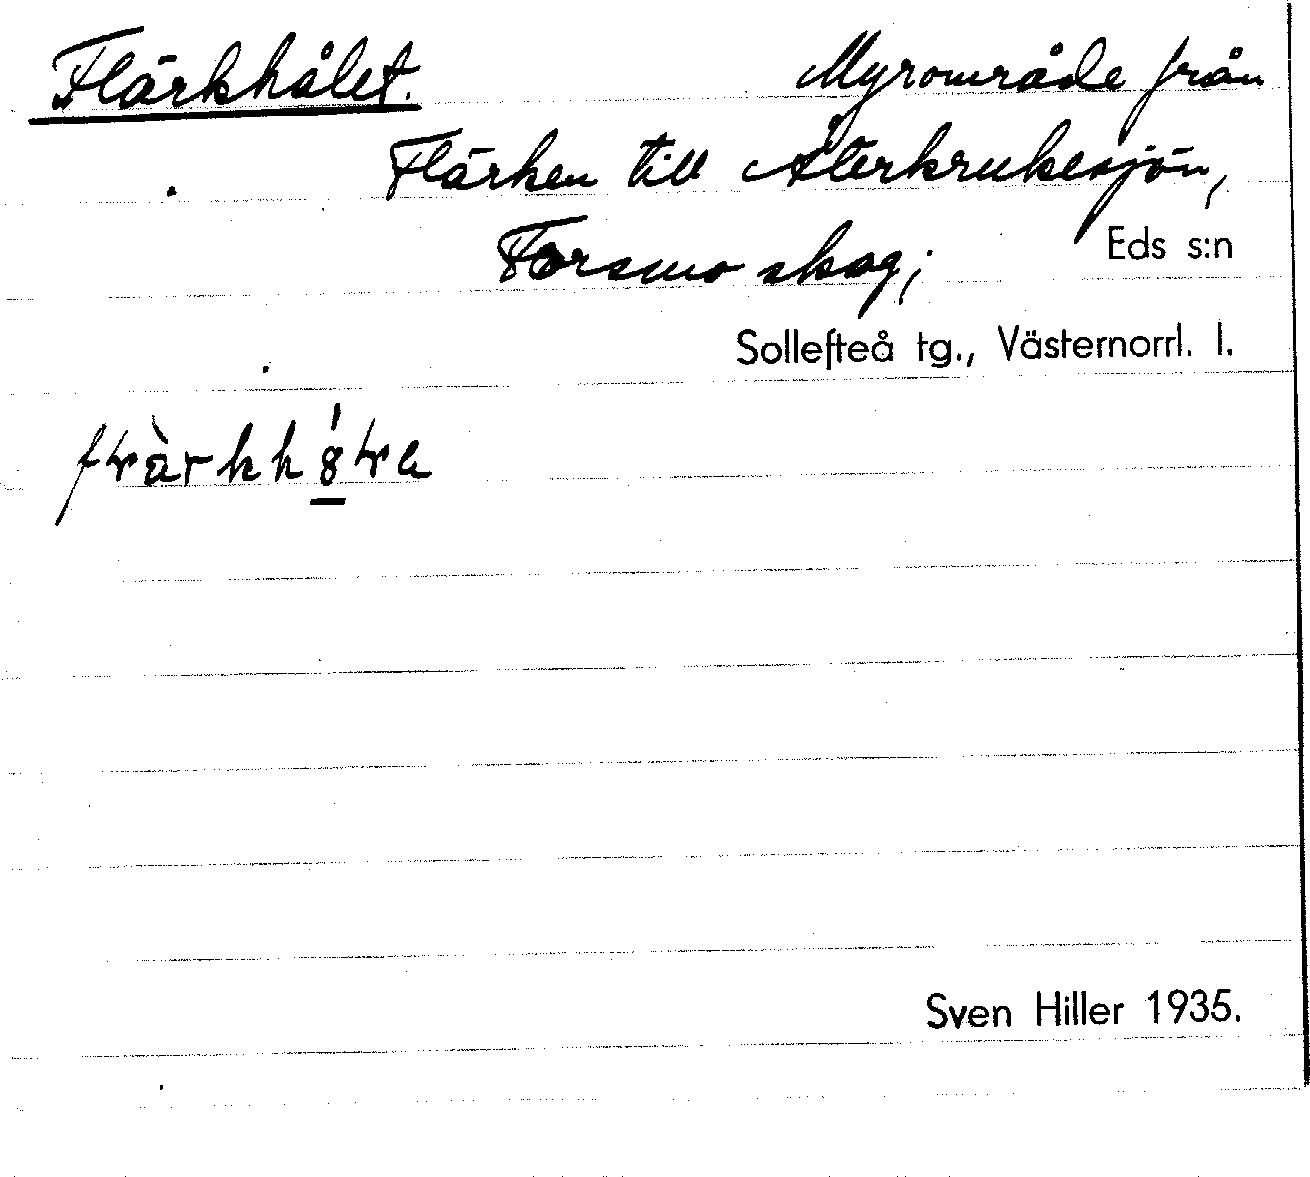 Flärkhålet. Myrområde från
Flärken till Återkrukesjön,
Forsmo skog;
Eds s:n
Sollefteå tg., Västernorrl. l.
Sven Hiller 1935.